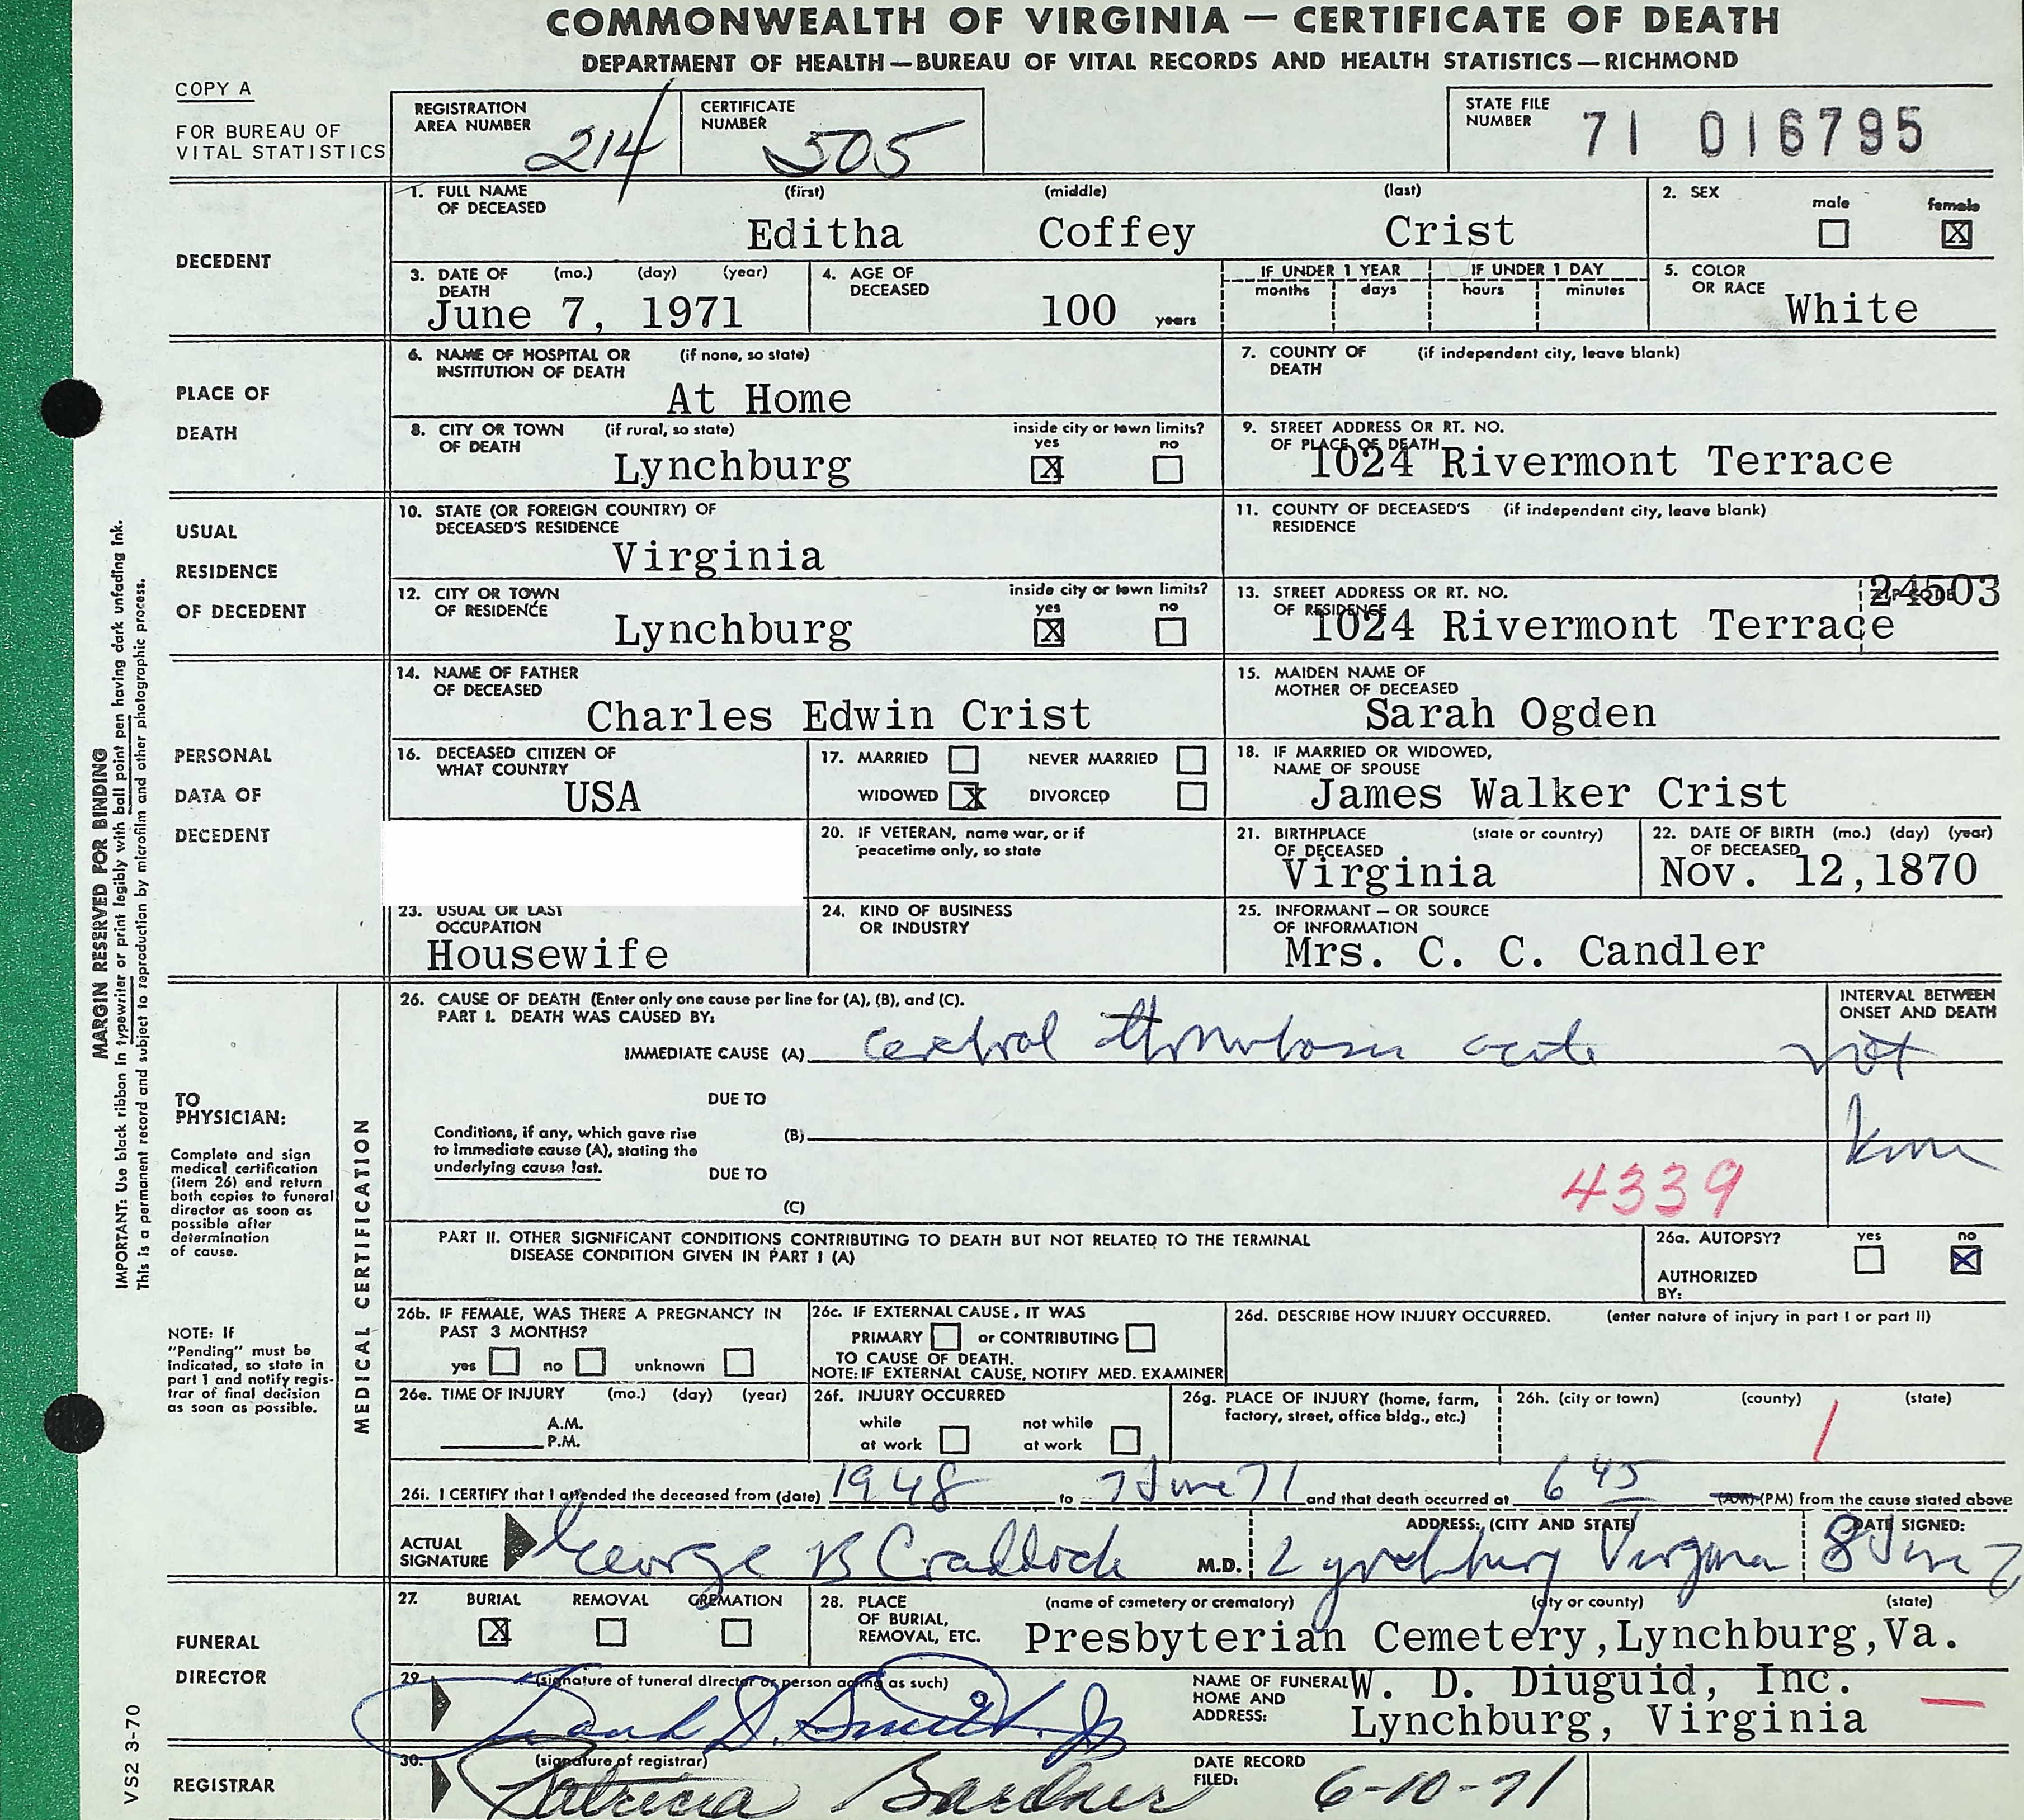 COMMONWEALTH OF VIRGINIA — CERTIFICATE OF DEATH
DEPARTMENT OF HEALTH—BUREAU OF VITAL RECORDS AND HEALTH STATISTICS—RICHMOND
COPY A
FOR BUREAU OF
VITAL STATISTICS
REGISTRATION
AREA NUMBER 214
CERTIFICATE
NUMBER 505
STATE FILE
NUMBER 71 016795
DECEDENT
1. FULL NAME (first) (middle) (last)
OF DECEASED
Editha Coffey Crist
2. SEX
male female
X
3. DATE OF (mo.) (day) (year)
DEATH
June 7, 1971
4. AGE OF
DECEASED
100 years
IF UNDER 1 YEAR
months days
IF UNDER 1 DAY
hours minutes
5. COLOR
OR RACE White
PLACE OF
DEATH
6. NAME OF HOSPITAL OR (if none, so state)
INSTITUTION OF DEATH
At Home
7. COUNTY OF (if independent city, leave blank)
DEATH
8. CITY OR TOWN (if rural, so state) inside city or town limits?
OF DEATH yes no
Lynchburg X
9. STREET ADDRESS OR RT. NO.
OF PLACE OF DEATH
1024 Rivermont Terrace
USUAL
RESIDENCE
OF DECEDENT
10. STATE (OR FOREIGN COUNTRY) OF
DECEASED'S RESIDENCE
Virginia
11. COUNTY OF DECEASED'S (if independent city, leave blank)
RESIDENCE
12. CITY OR TOWN inside city or town limits?
OF RESIDENCE yes no
Lynchburg X
13. STREET ADDRESS OR RT. NO. ZIP CODE
OF RESIDENCE 24503
1024 Rivermont Terrace
PERSONAL
DATA OF
DECEDENT
14. NAME OF FATHER
OF DECEASED
Charles Edwin Crist
15. MAIDEN NAME OF
MOTHER OF DECEASED
Sarah Ogden
16. DECEASED CITIZEN OF
WHAT COUNTRY
USA
17. MARRIED NEVER MARRIED
WIDOWED X DIVORCED
18. IF MARRIED OR WIDOWED,
NAME OF SPOUSE
James Walker Crist
20. IF VETERAN, name war, or if
peacetime only, so state
21. BIRTHPLACE (state or country)
OF DECEASED
Virginia
22. DATE OF BIRTH (mo.) (day) (year)
OF DECEASED
Nov. 12,1870
23. USUAL OR LAST
OCCUPATION
Housewife
24. KIND OF BUSINESS
OR INDUSTRY
25. INFORMANT — OR SOURCE
OF INFORMATION
Mrs. C. C. Candler
MARGIN RESERVED FOR BINDING
IMPORTANT: Use black ribbon in typewriter or print legibly with ball point pen having dark unfading ink.
This is a permanent record and subject to reproduction by microfilm and other photographic process.
TO
PHYSICIAN:
Complete and sign
medical certification
(item 26) and return
both copies to funeral
director as soon as
possible after
determination
of cause.
NOTE: If
"Pending" must be
indicated, so state in
part 1 and notify regis-
trar of final decision
as soon as possible.
MEDICAL CERTIFICATION
26. CAUSE OF DEATH (Enter only one cause per line for (A), (B), and (C).
PART I. DEATH WAS CAUSED BY:
IMMEDIATE CAUSE (A) cerebral thrombosis acute
INTERVAL BETWEEN
ONSET AND DEATH
not
DUE TO
Conditions, if any, which gave rise
to immediate cause (A), stating the
underlying cause last.
(B)
DUE TO
(C)
4339
PART II. OTHER SIGNIFICANT CONDITIONS CONTRIBUTING TO DEATH BUT NOT RELATED TO THE TERMINAL
DISEASE CONDITION GIVEN IN PART I (A)
26a. AUTOPSY? yes no
X
AUTHORIZED
BY:
26b. IF FEMALE, WAS THERE A PREGNANCY IN
PAST 3 MONTHS?
yes no unknown
26c. IF EXTERNAL CAUSE, IT WAS
PRIMARY or CONTRIBUTING
TO CAUSE OF DEATH.
NOTE: IF EXTERNAL CAUSE, NOTIFY MED. EXAMINER
26d. DESCRIBE HOW INJURY OCCURRED. (enter nature of injury in part I or part II)
26e. TIME OF INJURY (mo.) (day) (year)
A.M.
P.M.
26f. INJURY OCCURRED
while not while
at work at work
26g. PLACE OF INJURY (home, farm,
factory, street, office bldg., etc.)
26h. (city or town) (county) (state)
1
26i. I CERTIFY that I attended the deceased from (date) 1948 to 7 June 71 and that death occurred at 6 45 (AM) (PM) from the cause stated above
ACTUAL
SIGNATURE George B Craddock M.D.
ADDRESS: (CITY AND STATE)
Lynchburg Virginia
DATE SIGNED:
8 June 7
FUNERAL
DIRECTOR
27. BURIAL REMOVAL CREMATION
X
28. PLACE (name of cemetery or crematory) (city or county) (state)
OF BURIAL,
REMOVAL, ETC.
Presbyterian Cemetery,Lynchburg,Va.
29. (signature of funeral director or person acting as such)
Frank D. Smith. Jr
NAME OF FUNERAL
HOME AND
ADDRESS:
W. D. Diuguid, Inc.
Lynchburg, Virginia
REGISTRAR
30. (signature of registrar)
Patricia Bardner
DATE RECORD
FILED: 6-10-71
VS2 3-70